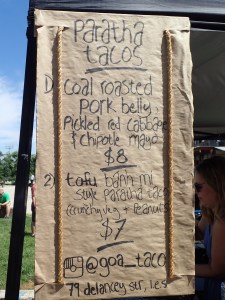 paratha
tacos
1) coal roasted
pork belly,
pickled red cabbage
& chipotle mayo
$8
2) tofu banh mi
style paratha taco
(crunchy veg + peanuts)
$7
@goa_taco
79 delancey str, l.e.s